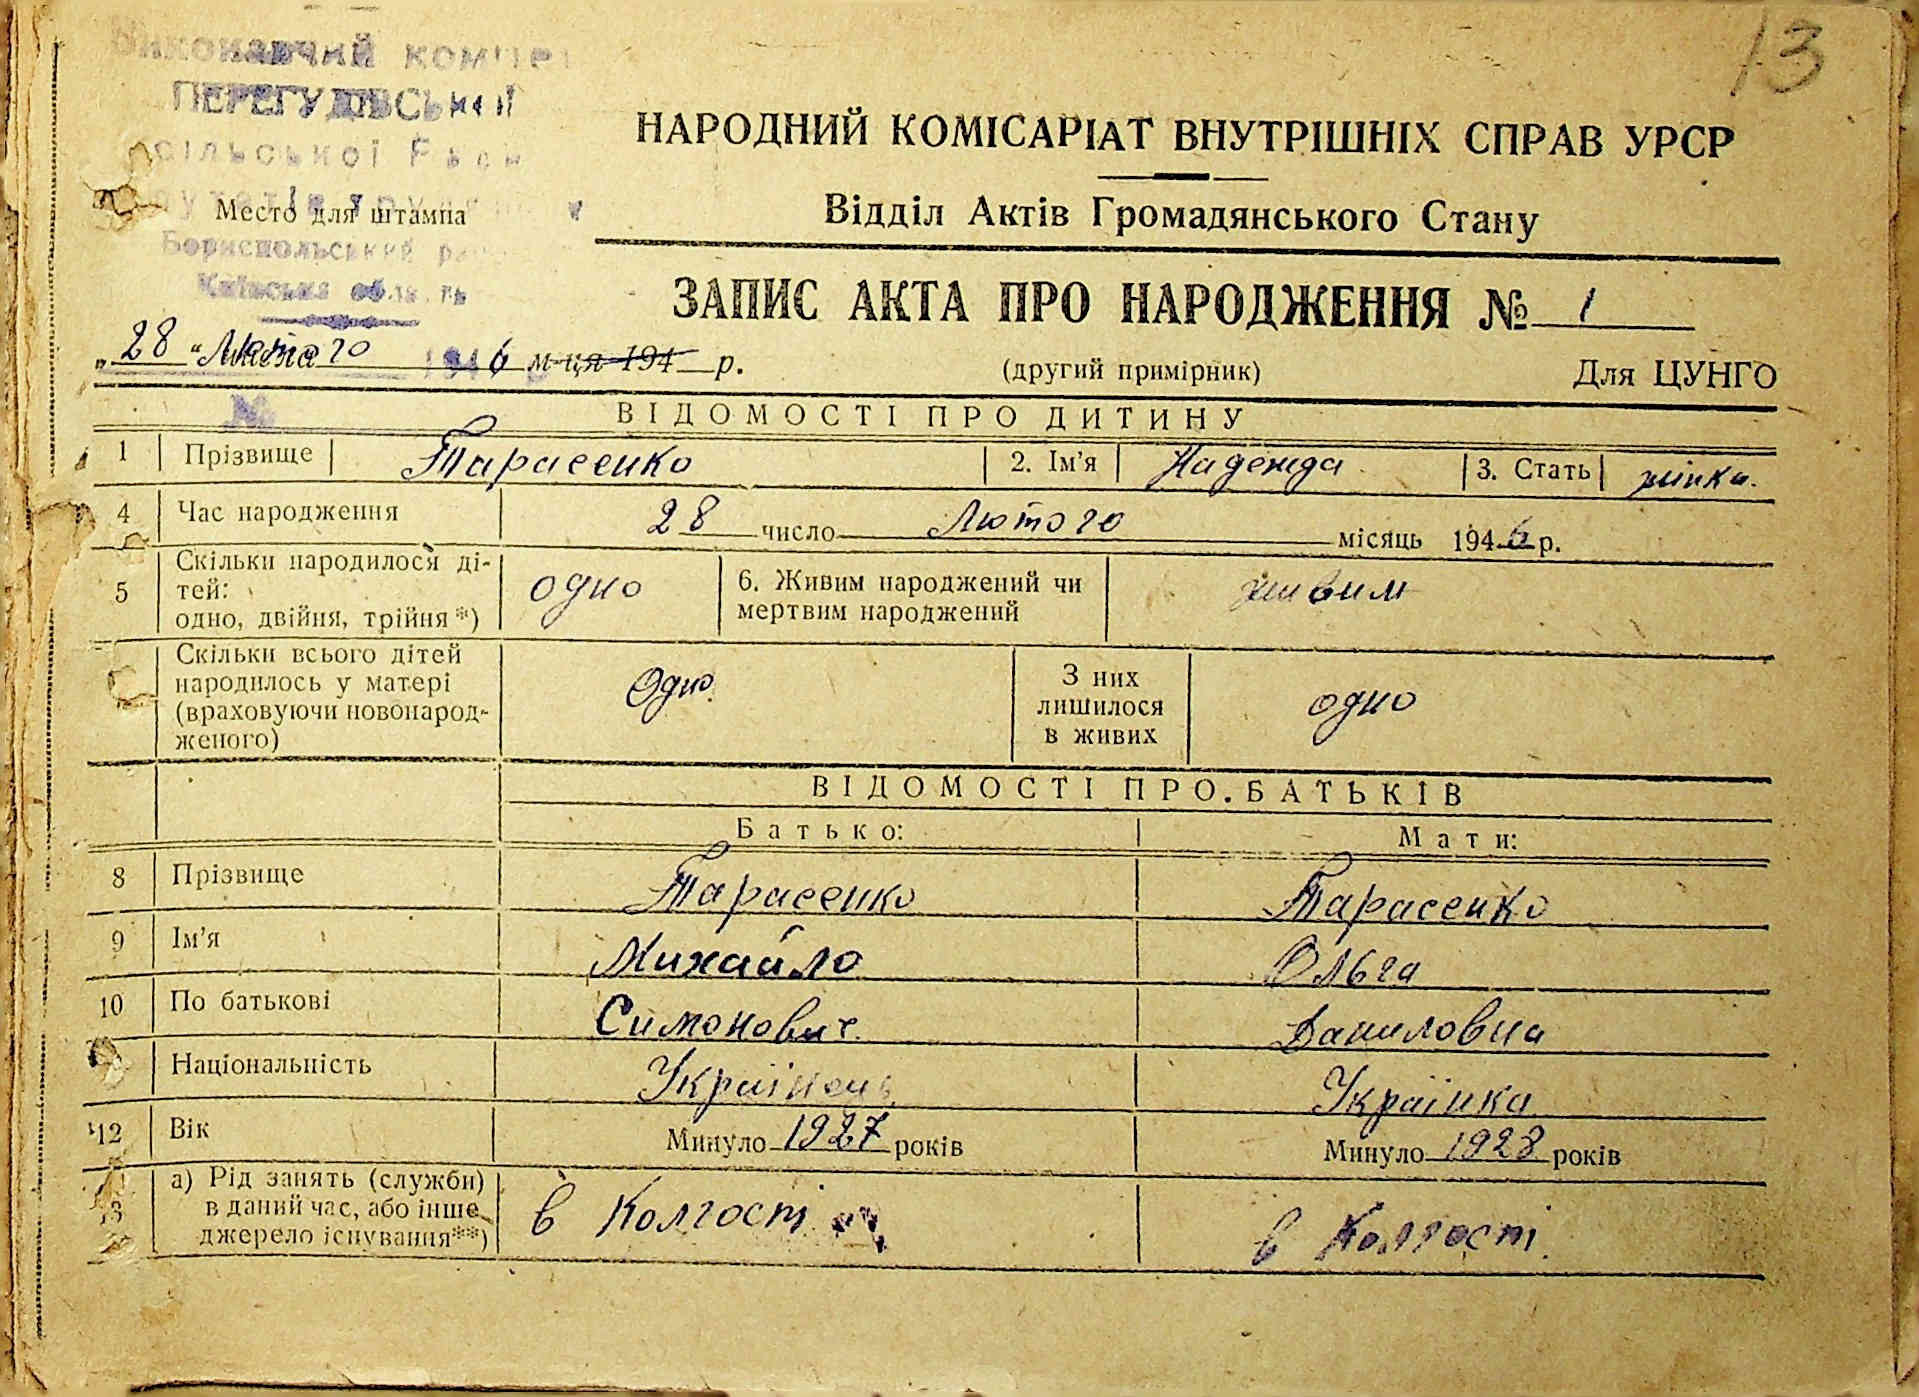 13
Виконавчий комітет
ПЕРЕГУДІВСЬКИЙ
сільської Ради
Место для штампа
Бориспольський
Київська область
НАРОДНИЙ КОМІСАРІАТ ВНУТРІШНІХ СПРАВ УРСР
Відділ Актів Громадянського Стану
ЗАПИС АКТА ПРО НАРОДЖЕННЯ № 1
„28“ Лютого 1946 м-ця 194 р.
(другий примірник) Для ЦУНГО
№
ВІДОМОСТІ ПРО ДИТИНУ
1 Прізвище Тарасенко 2. Ім'я Надежда 3. Стать жінка.
4 Час народження 28 число Лютого місяць 1946 р.
5 Скільки народилося ді-
тей:
одно, двійня, трійня*) одно 6. Живим народжений чи
мертвим народжений живим
Скільки всього дітей
народилось у матері
(враховуючи новонарод-
женого) Одно. З них
лишилося
в живих одно
ВІДОМОСТІ ПРО БАТЬКІВ
Батько: Мати:
8 Прізвище Тарасенко Тарасенко
9 Ім'я Михайло Ольга
10 По батькові Симонович Даниловна
Національність Українець Українка
12 Вік Минуло 1927 років Минуло 1928 років
13 а) Рід занять (служби)
в даний час, або інше
джерело існування**) в Колгости в Колгості.